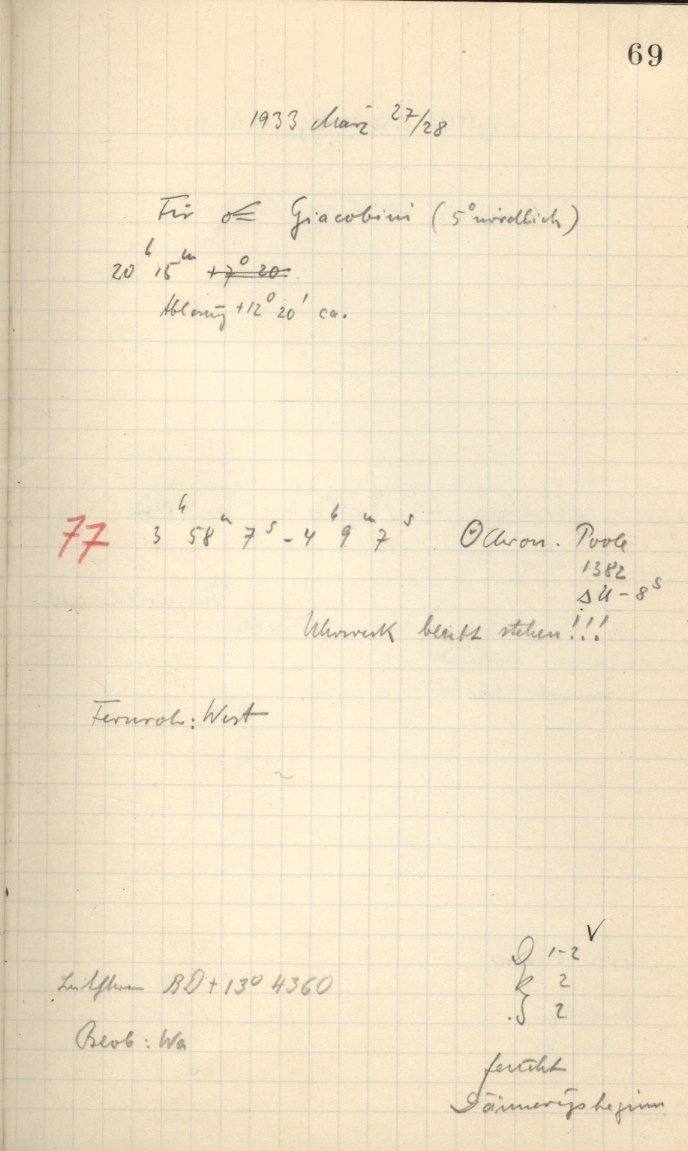 69
1933 März 27/28
Für ☄ Giacobini (5° nördlich)
20h 15m +7° 20
Ablesung +12° 20' ca.
77 3h 58m 7s - 4h 9m 7s ⊙ Chron. Poole
1382
ΔU - 8s
Uhrwerk bleibt stehen!!!
Fernrohr: West
D 1-2 ✓
Leitstern BD+13° 4360
R 2
S 2
Beob: Wa
feucht
Dämmerungsbeginn